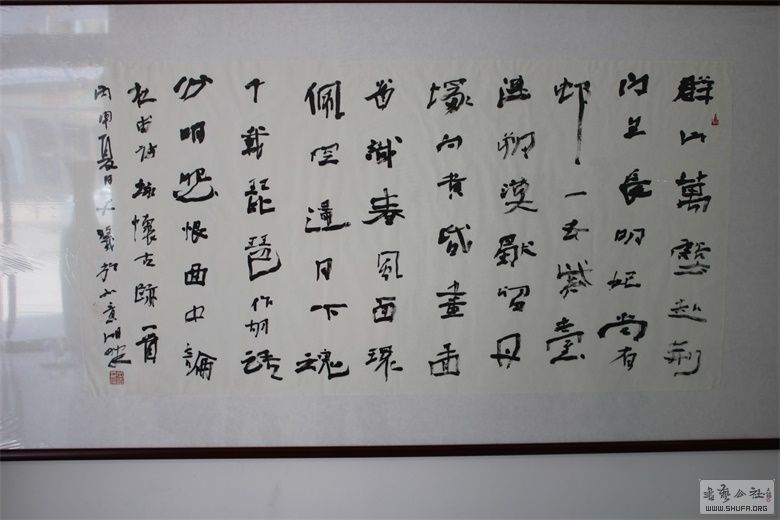 群山萬壑赴荊
门生長明妃尚有
邨一去紫臺
連朔漠獨留青
塚向黄昏畫圖
省識春風面環
佩空月下魂
千載琵琶作胡語
分明怨恨曲中論
杜甫詩詠懷古跡一首
丙申夏日湖畔
書藝公社
WWW.SHUFA.ORG